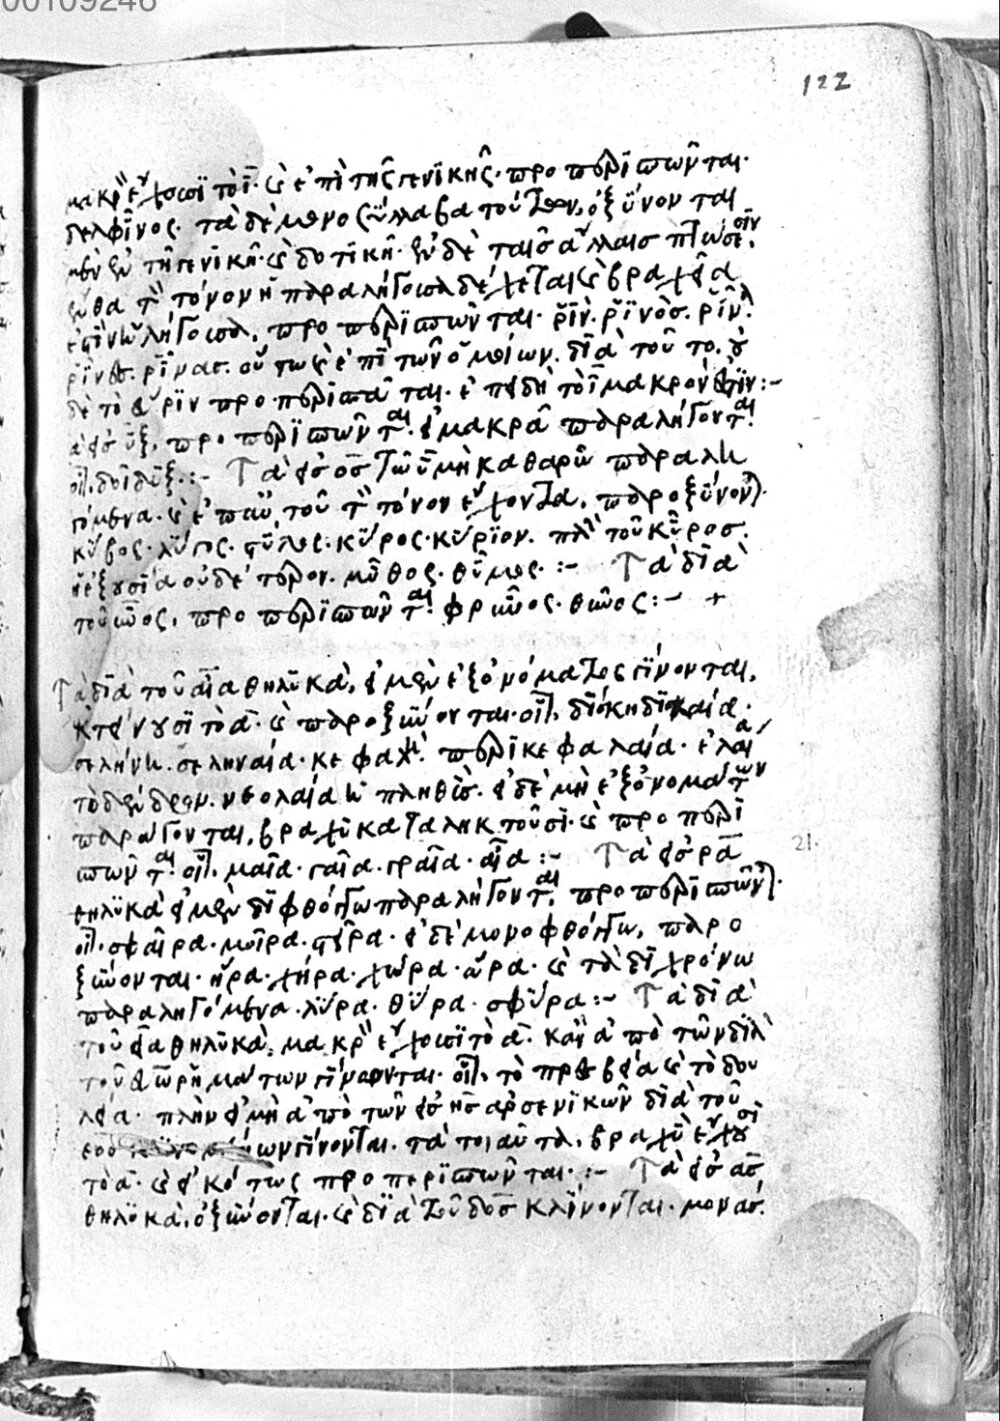 00109246
122
μακρὸν ἔχουσι τὸ ῑ· καὶ ἐπὶ τῆς γενικῆς· προπερισπῶνται·
δελφῖνος· τὰ δὲ μονοσύλλαβα τούτων, ὀξύνονται
μὲν ἐν τῇ γενικῇ· καὶ δοτικῇ· ἐν δὲ ταῖς ἄλλαις πτώσεσιν·
ἔνθα τὸν τόνον ἡ παραλήγουσα δέχεται καὶ βραχεῖα
ἐστὶν ἡ λήγουσα, προπερισπῶνται· ῥίν· ῥινός· ῥίνα·
ῥῖνες· ῥῖνας· οὕτως ἐπὶ τῶν ὁμοίων· διὰ τοῦτο, οὐ
δὲ τὸ ῥιν προπερισπᾶται· ἐπειδὴ τὸ ῑ μακρόν ἐστιν:–
εἰς υξ, προπερισπῶνται· εἰ μακρᾷ παραλήγονται·
οἷον δοίδυξ:– Τὰ εἰς ος τῶ υ μὴ καθαρῶ παραλη
γόμενα· καὶ ἐπ' αὐτοῦ τὸν τόνον ἔχοντα, παροξύνονται·
κύβος· λύγος· κύρος· κύριον· πλὴν τοῦ κῦρος·
ἡ ἐξουσία οὐδέτερον· μῦθος· θῦμος· :– Τὰ διὰ
τοῦ ωος, προπερισπῶνται· θῶος:– +
Τὰ διὰ τοῦ αια θηλυκὰ, εἰ μὲν ἐξ ὀνόματος γίνονται,
ἐκτείνουσι τὸ α· καὶ παροξύνονται· οἷον, δίκη δικαία·
σελήνη· σεληναία· κεφαλή· περικεφαλαία· ἐλαία
τὸ δένδρον· νεολαία ἡ πληθύς· εἰ δὲ μὴ ἐξ ὀνομάτων
παράγονται, βραχυκαταληκτοῦσι· καὶ προπερι
σπῶνται· οἷον, μαῖα· γαῖα· γραῖα· αἶα :– Τὰ εἰς ρα
θηλυκὰ εἰ μὲν διφθόγγω παραλήγονται, προπερισπῶνται·
οἷον· σφαῖρα· μοῖρα· πεῖρα· εἰ δὲ μονοφθόγγω, παρο
ξύνονται· ἥρα· χήρα· χώρα· ὥρα· καὶ τὰ διχρόνω
παραληγόμενα· λύρα· θύρα· σφύρα:– Τὰ διὰ
τοῦ εια θηλυκὰ, μακρὸν ἔχουσι τὸ α· καὶ ἀπὸ τῶν διὰ
τοῦ ευω ῥημάτων γίνονται· οἷον, τὸ πρεσβεία καὶ τὸ δου
λεία· πλὴν εἰ μὴ ἀπὸ τῶν εἰς ης ἀρσενικῶν διὰ τοῦ
εος γίνονται· τὰ τοιαῦτα, βραχὺ ἔχουσι
τὸ α· καὶ εἰκότως προπερισπῶνται· :– Τὰ εἰς ας
θηλυκὰ, ὀξύνονται· καὶ διὰ τοῦ δος κλίνονται· μονάς·
21.